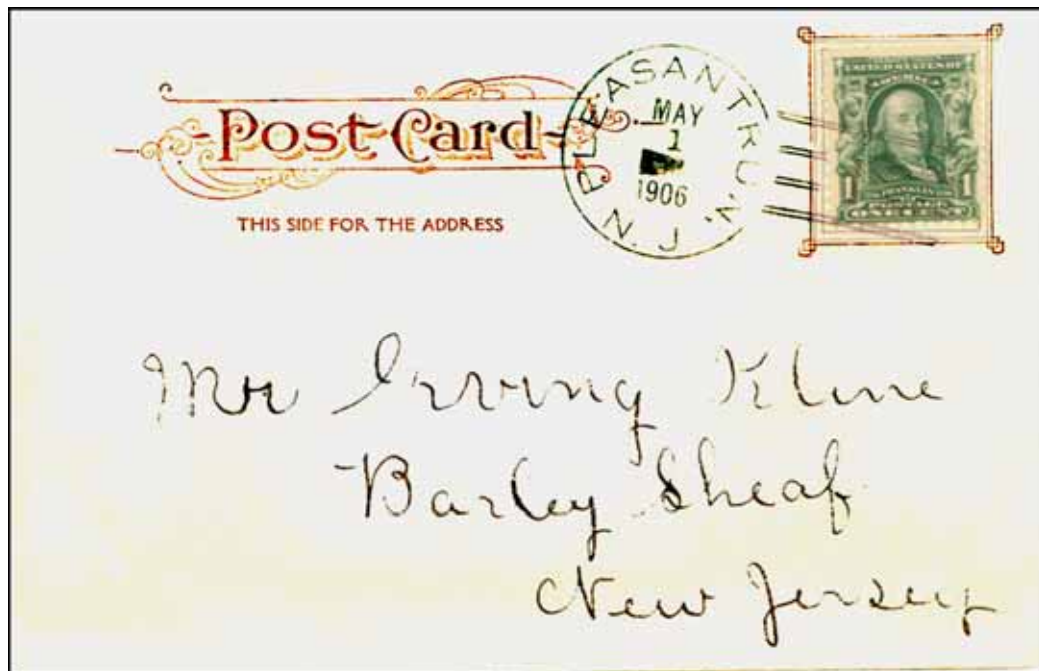 Post Card
THIS SIDE FOR THE ADDRESS
PLEASANT RUN.
N. J.
MAY
1
1906
UNITED STATES OF
AMERICA
1 FRANKLIN 1
POSTAGE
ONE CENT
Mr Irving Kline
Barley Sheaf
New Jersey